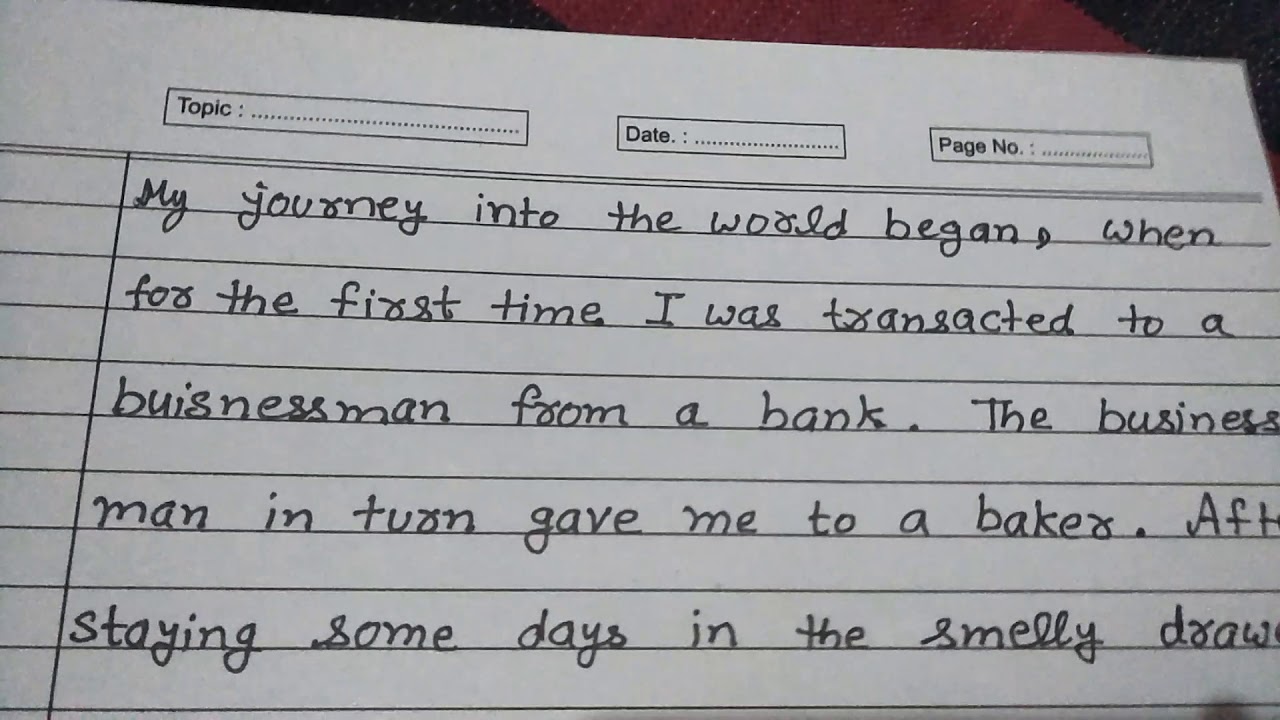 Topic : ..........................................
Date. : ..........................
Page No. : ....................
My journey into the world began, when
for the first time I was transacted to a
buisnessman from a bank. The business
man in turn gave me to a baker. Aft
staying some days in the smelly draw